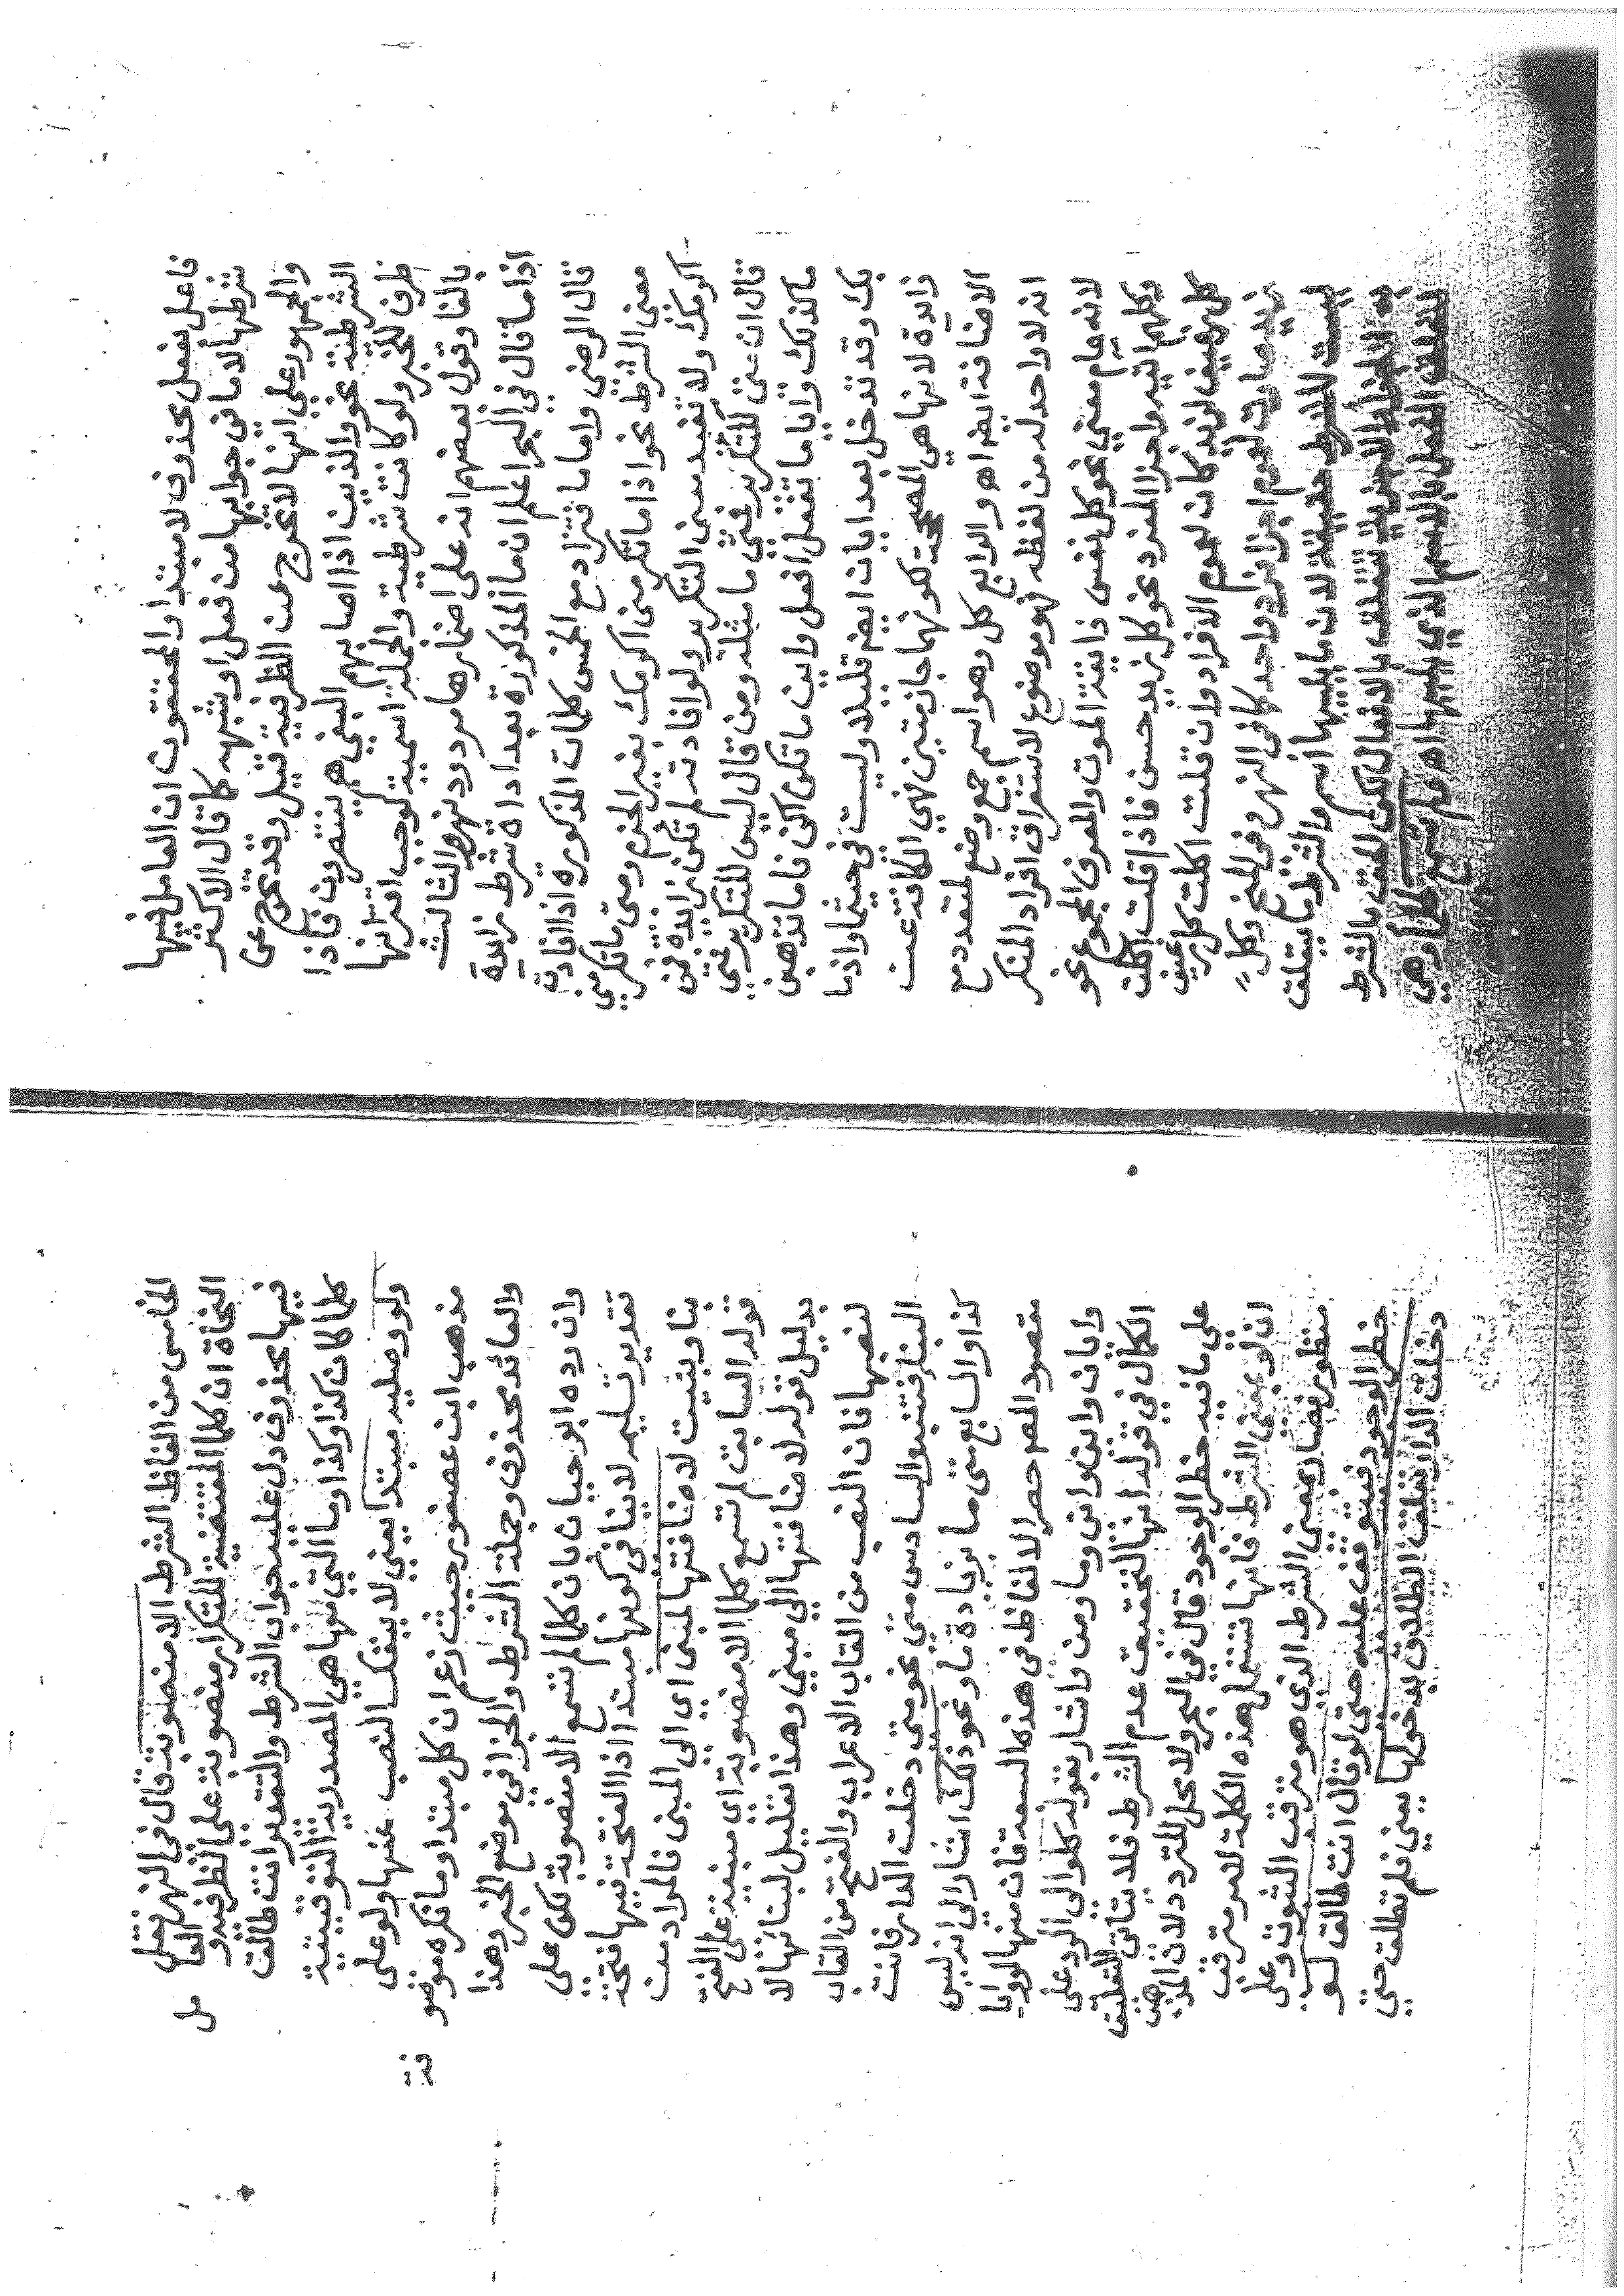 فاعل بفعل محذوف لا مبتدا والمحققون ان العامل فيها
شرطها لا ما في جوابها من فعل او شبهه كما قال الاكثر
والجمهور على انها لا تخرج عن الظرفية قيل وقد تخرج عن
الشرطية نحو والذين اذا اصابهم البغي هم ينتصرون فاذا
ظرف للخبر ولو كانت شرطية والجملة اسمية لوجب اقترانها
بالفا وقول بعضهم انه على اضمارها مردود نهر والثالث
اذا ما قال في البحر اعلم ان ما المذكورة بعد اداة شرط زايدة
قال الرضي واما ما فتزاد مع الخمس كلمات المذكورة اذا افادة
معنى الشرط نحو اذا ما تكرمني اكرمك بغير الجزم ومتى ما تكرمني
اكرمك ولا تفيد معنى التكرير ولو افادته لم تكن زايدة فمن
قال ان متى للتكرير فمتى ما مثله ومن قال ليس للتكرير فمتى
ما كذلك وايا ما تفعل افعل واين ما تكن اكن فاما تذهبن
بك وقد تدخل بعد ايان ايضا قليلا وليست في حيثما واذما
زايدة لانها هي المصححة لكونها جازمتين فهي الكافة عن
الاضافة ايضا اهـ والرابع كل وهو اسم جمع وضع لمتعدد مع
انه لا واحد له من لفظه فهو موضوع لاستغراق افراد المنكر
لانه عام معنى نحو كل نفس ذايقة الموت والمعرف المجموع نحو
وكلهم اتيه واجزا المفرد نحو كل زيد حسن فاذا قلت اكلت
كل رغيف لزيد كانت لعموم الافراد وان قلت اكلت كل رغيف
زيد صارت لعموم اجزا فرد واحد كما في النهر وفي المنح وكل
ليست للشرط حقيقة لان ما يليها اسم والشرط ما يتعلق
به الجزا والاجزية تتعلق بالافعال لكن الحقت بالشرط
لتعلق الفعل بالاسم الذي يليها اهـ
الخامس من الفاظ الشرط الا منصوبة قال في النهر نقل
النحاة ان كلما المقتضية للتكرار منصوبة على الظرفية والعامل
فيها محذوف دل عليه جواب الشرط والتقدير انت طالق
كلما كان كذا وكذا وما التي معها هي المصدرية التوقيتية
ولو وصلية مبتدا يعني لا ينفك النصب عنها ولو على
مذهب ابن عصفور حيث زعم ان كل مبتدا وما نكرة موصوفة
والعائد محذوف وجملة الشرط والجزا في موضع الخبر وهذا
وان رده ابو حيان بان كلما لم تسمع الا منصوبة لكن على
تقدير تسليمه لا ينافي كونها مبتدا اذا الفتحة فيها فتحة
بنا وبنيت لاضافتها لمبنى اي الى المبنى فالمراد من
قوله السابق لم تسمع كلما الا منصوبة اي مبنية على الفتح
بدليل قوله لاضافتها الى مبني وهذا تعليل لبنائها لا
لنصبها فان النصب من القاب الاعراب والفتح من القاب
البنا فتنبه والسادس متى نحو متى دخلت الدار فانت
كذا والسابع متى ما بزيادة ما ونحو ذلك اشار الى انه ليس
مقصود المصر حصر الالفاظ في هذه السبعة فان منها لو وايا
وايان واين وانى وما ومن واشار بقوله كلو الى الرد على
الكمال في قوله انها لتحقيق عدم الشرط فلا يتاتى التعليق
على ما فيه خطر الوجود قال في البحر ولا محل للتردد لان المذهب
ان لو بمعنى الشرط فانها تستعمل هذه الكلمة لامر مترقب
منتظر فصار بمعنى الشرط الذي هو مترقب الثبوت وعلى
خطر الوجود فيتوقف عليه حتى لو قال انت طالق لو
دخلت الدار تعلق الطلاق بدخولها يعني فلم تطلق حتى